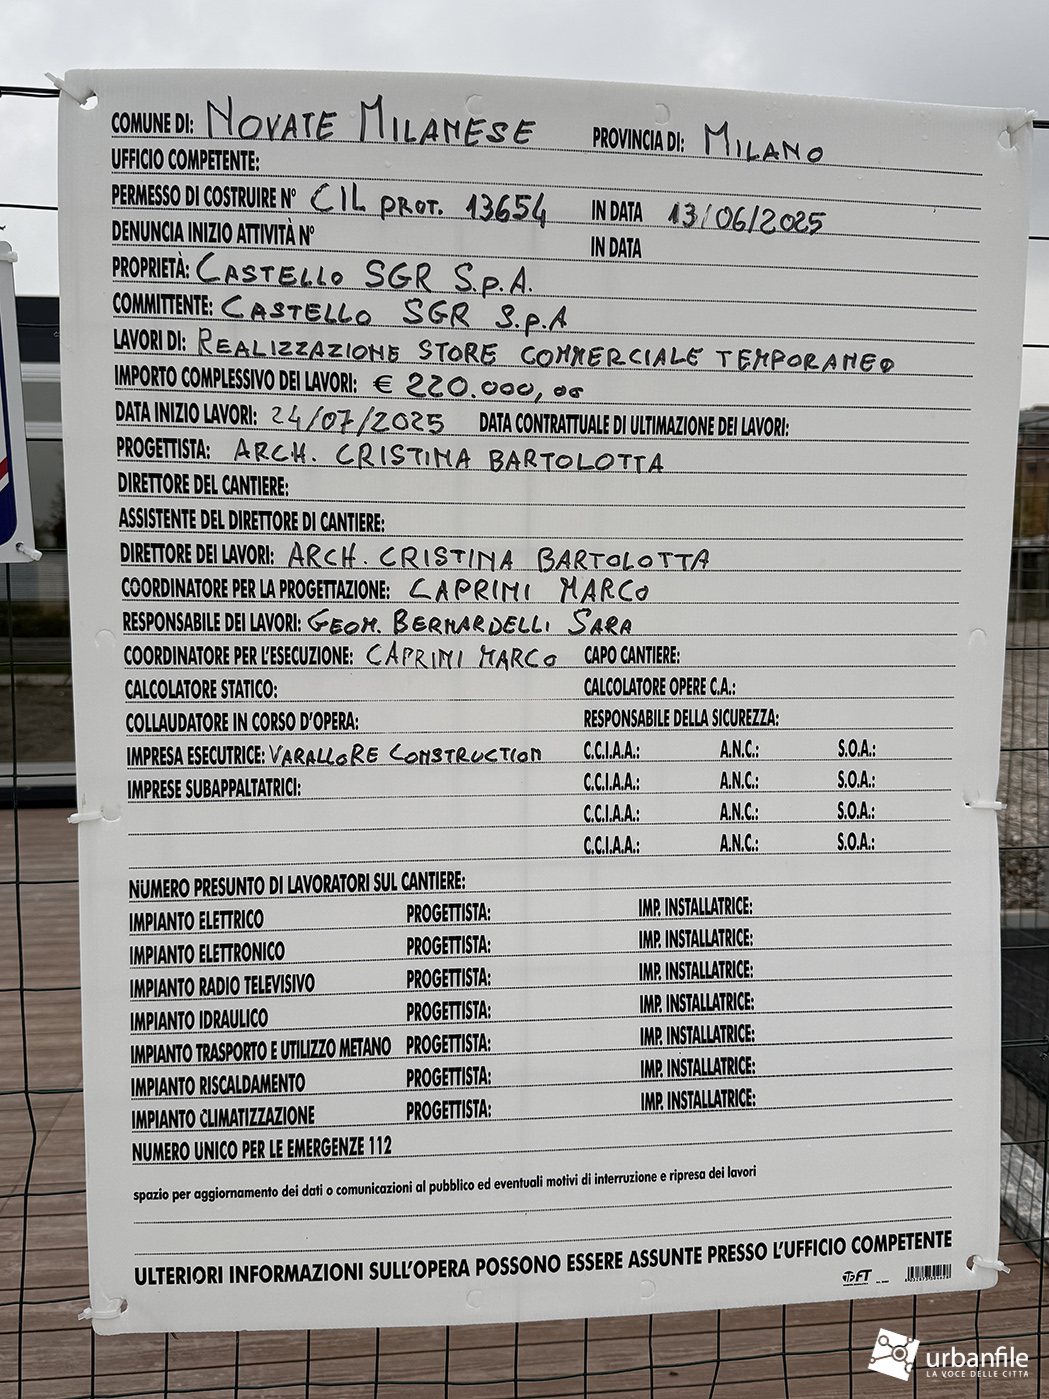 COMUNE DI: NOVATE MILANESE PROVINCIA DI: MILANO
UFFICIO COMPETENTE:
PERMESSO DI COSTRUIRE N° CIL PROT. 13654 IN DATA 13/06/2025
DENUNCIA INIZIO ATTIVITÀ N° IN DATA
PROPRIETÀ: CASTELLO SGR S.p.A.
COMMITTENTE: CASTELLO SGR S.p.A
LAVORI DI: REALIZZAZIONE STORE COMMERCIALE TEMPORANEO
IMPORTO COMPLESSIVO DEI LAVORI: € 220.000,00
DATA INIZIO LAVORI: 24/07/2025 DATA CONTRATTUALE DI ULTIMAZIONE DEI LAVORI:
PROGETTISTA: ARCH. CRISTINA BARTOLOTTA
DIRETTORE DEL CANTIERE:
ASSISTENTE DEL DIRETTORE DI CANTIERE:
DIRETTORE DEI LAVORI: ARCH. CRISTINA BARTOLOTTA
COORDINATORE PER LA PROGETTAZIONE: CAPRINI MARCO
RESPONSABILE DEI LAVORI: GEOM. BERNARDELLI SARA
COORDINATORE PER L'ESECUZIONE: CAPRINI MARCO CAPO CANTIERE:
CALCOLATORE STATICO: CALCOLATORE OPERE C.A.:
COLLAUDATORE IN CORSO D'OPERA: RESPONSABILE DELLA SICUREZZA:
IMPRESA ESECUTRICE: VARALLORE CONSTRUCTION C.C.I.A.A.: A.N.C.: S.O.A.:
IMPRESE SUBAPPALTATRICI: C.C.I.A.A.: A.N.C.: S.O.A.:
C.C.I.A.A.: A.N.C.: S.O.A.:
C.C.I.A.A.: A.N.C.: S.O.A.:
NUMERO PRESUNTO DI LAVORATORI SUL CANTIERE:
IMPIANTO ELETTRICO PROGETTISTA: IMP. INSTALLATRICE:
IMPIANTO ELETTRONICO PROGETTISTA: IMP. INSTALLATRICE:
IMPIANTO RADIO TELEVISIVO PROGETTISTA: IMP. INSTALLATRICE:
IMPIANTO IDRAULICO PROGETTISTA: IMP. INSTALLATRICE:
IMPIANTO TRASPORTO E UTILIZZO METANO PROGETTISTA: IMP. INSTALLATRICE:
IMPIANTO RISCALDAMENTO PROGETTISTA: IMP. INSTALLATRICE:
IMPIANTO CLIMATIZZAZIONE PROGETTISTA: IMP. INSTALLATRICE:
NUMERO UNICO PER LE EMERGENZE 112
spazio per aggiornamento dei dati o comunicazioni al pubblico ed eventuali motivi di interruzione e ripresa dei lavori
ULTERIORI INFORMAZIONI SULL'OPERA POSSONO ESSERE ASSUNTE PRESSO L'UFFICIO COMPETENTE
urbanfile
LA VOCE DELLE CITTÀ